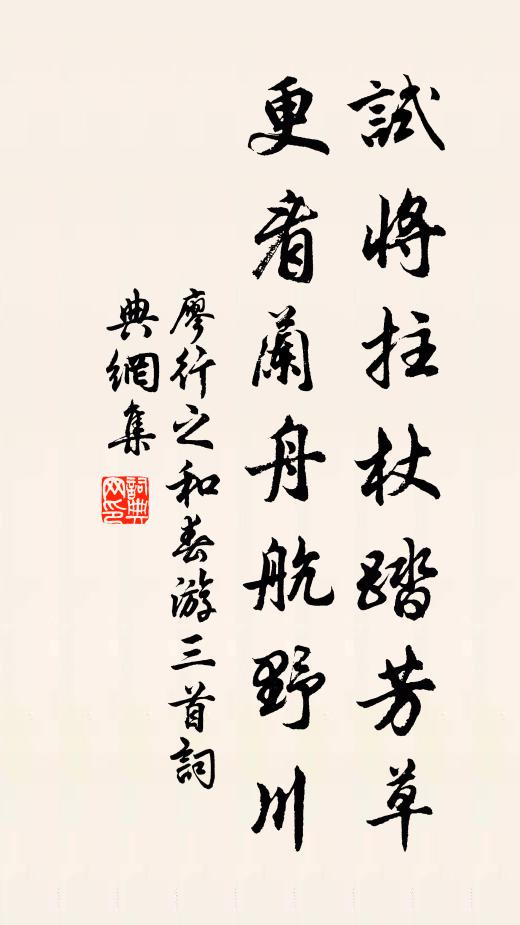 試將拄杖踏芳草
更看蘭舟航野川
廖行之和春游三首詞
典網集
詞典网印